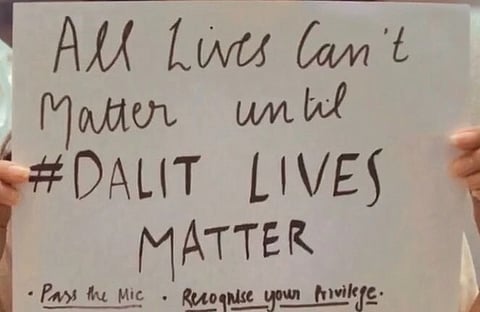 All Lives Can't
Matter until
#DALIT LIVES
MATTER
· Pass the Mic · Recognise your Privilege.